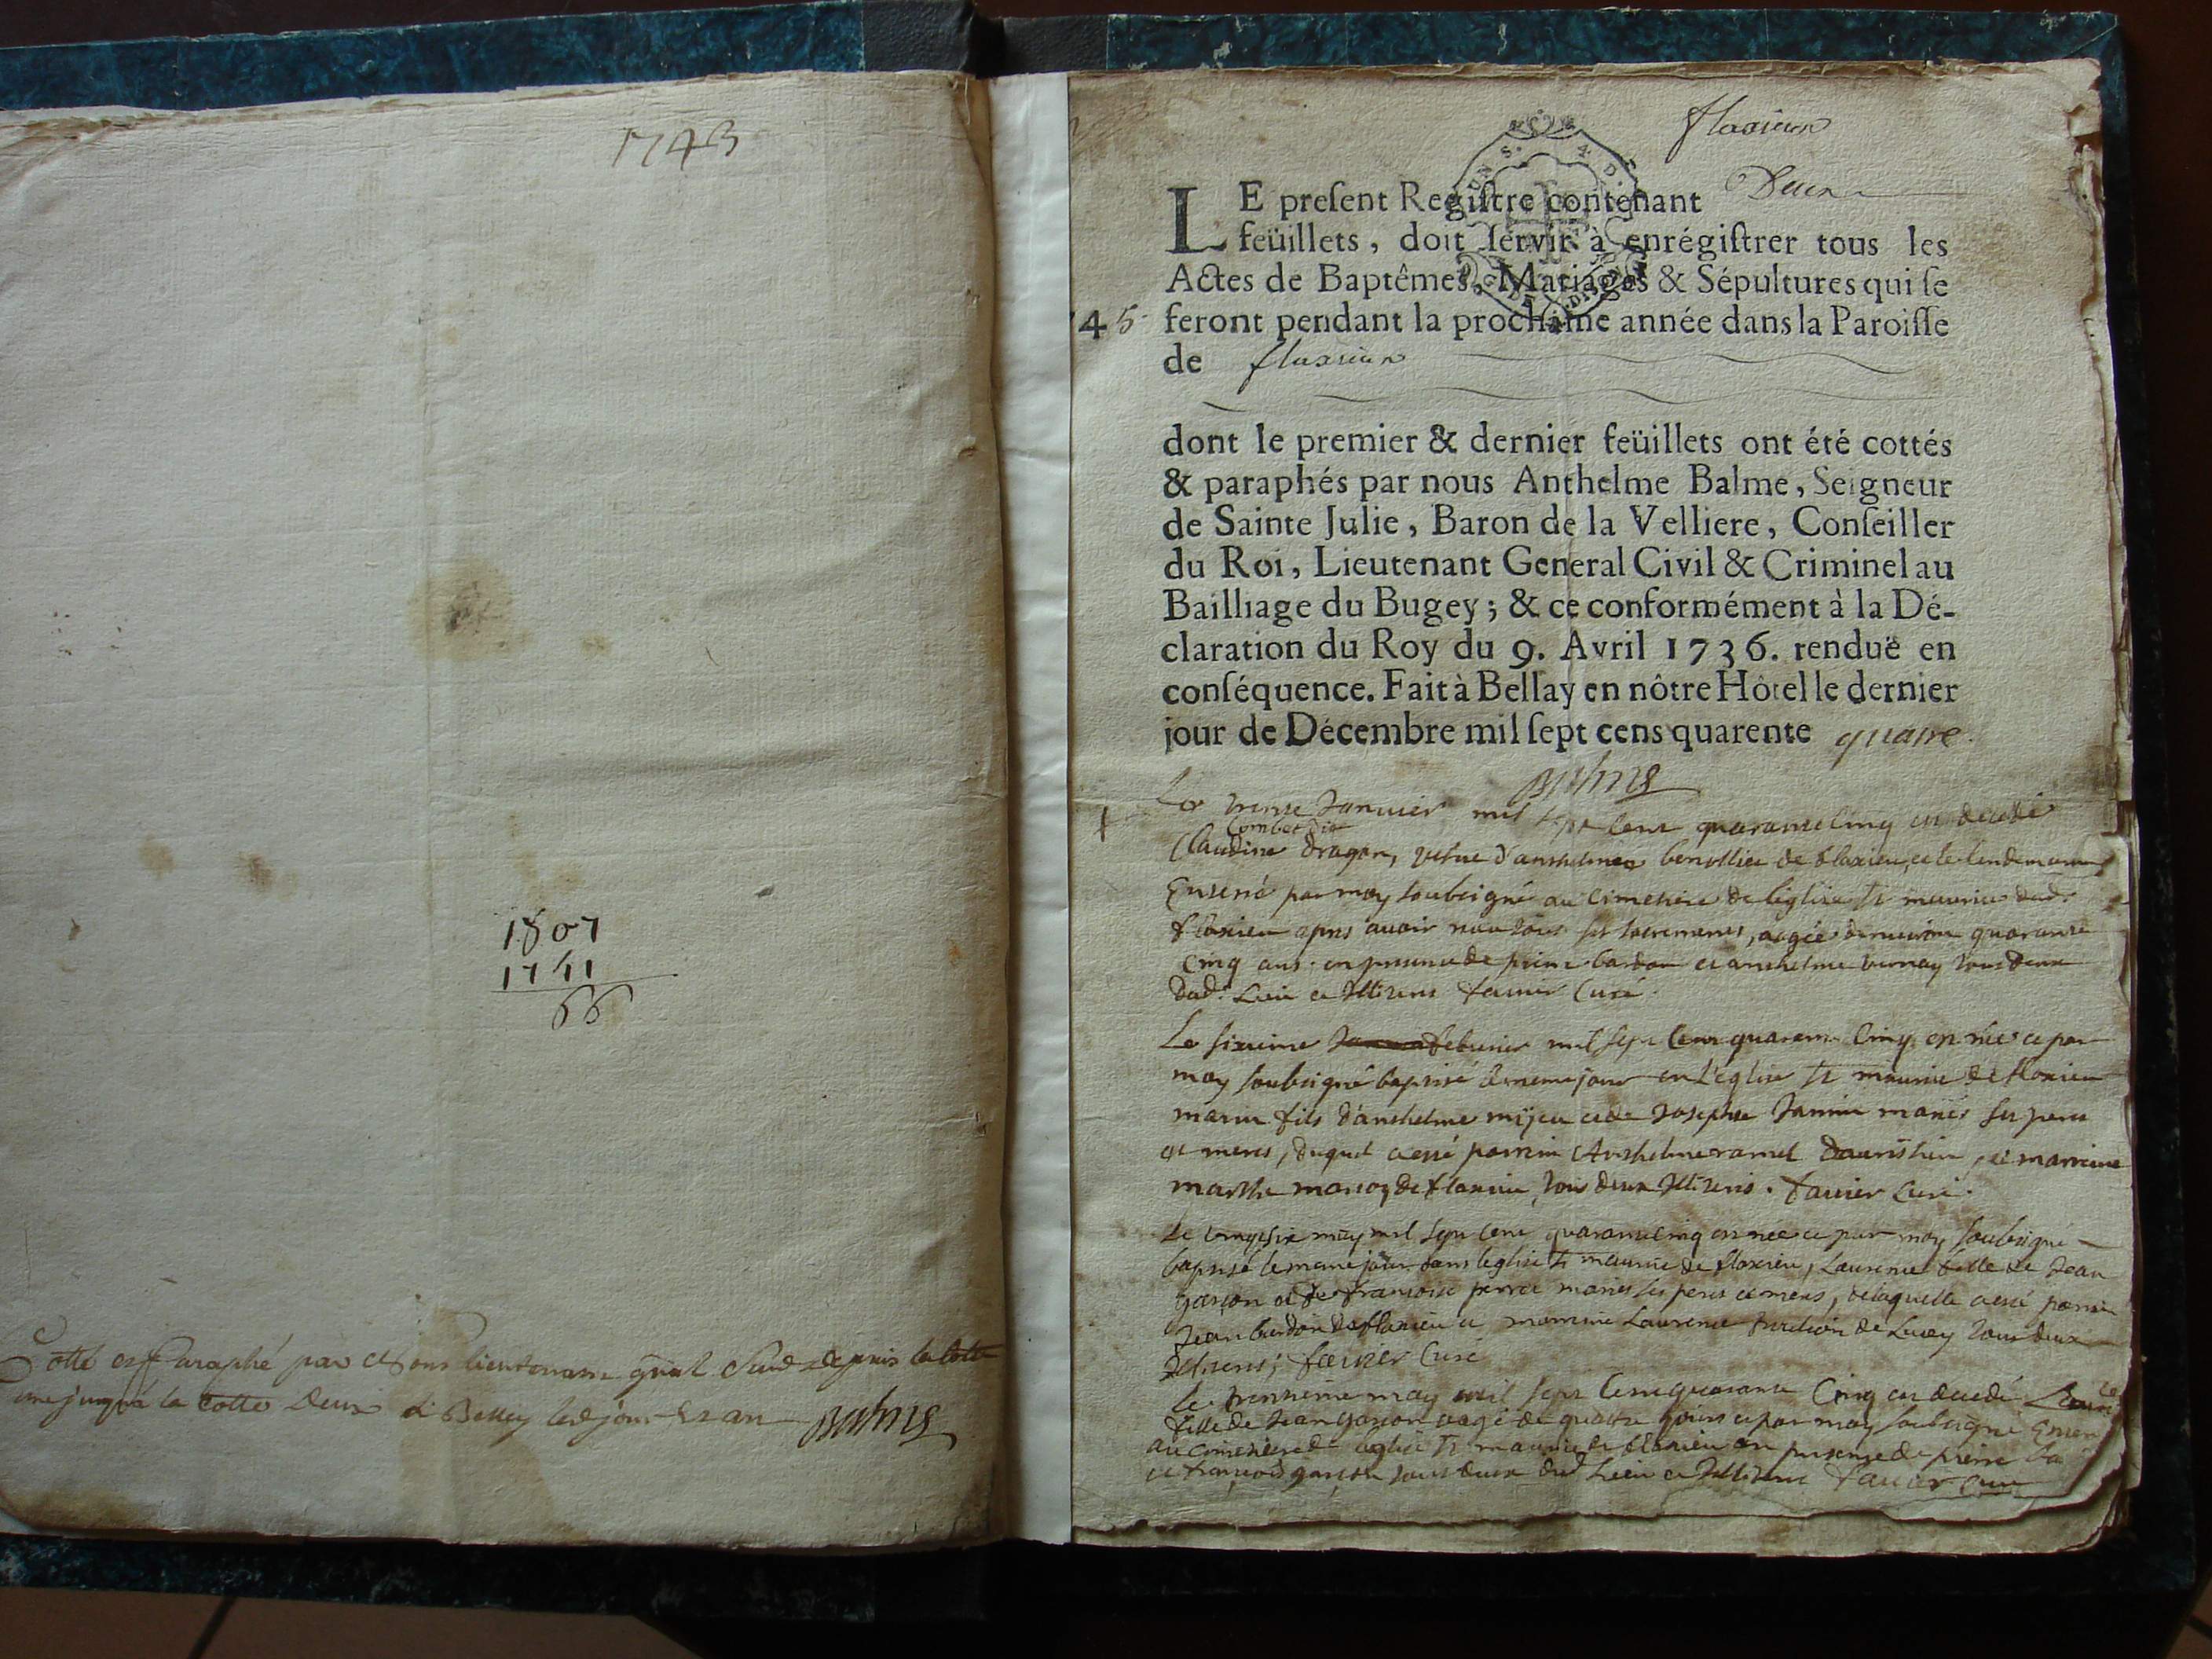 1743
1807
1741
66
Cotté et Paraphé par
jusqu'à la cotte Deux à Belley jour et an
Balme
flaxieu
Deux
LE preſent Regiſtre contenant
feüillets, doit ſervir à enrégiſtrer tous les
Actes de Baptêmes, Mariages & Sépultures qui ſe
45 feront pendant la prochaine année dans la Paroiſſe
de flaxieu
dont le premier & dernier feüillets ont été cottés
& paraphés par nous Anthelme Balme, Seigneur
de Sainte Julie, Baron de la Velliere, Conſeiller
du Roi, Lieutenant General Civil & Criminel au
Bailliage du Bugey; & ce conformément à la Dé-
claration du Roy du 9. Avril 1736. renduë en
conſéquence. Fait à Bellay en nôtre Hôtel le dernier
jour de Décembre mil ſept cens quarente quatre.
Balme
Le trente Janvier mil sept cent quarante cinq est decedé
Combet dit
Claudine dragon, vefve d'anthelme de flaxieu, et le lendemain
Enterré par moy soubsigné au cimetiere de l'église St maurice dud.
flaxieu apres avoir receu tous ses sacrements, aagée d'environ quarante
cinq ans. en presence de pierre bardon et anthelme vernay tous deux
dud. Lieu et Illiterés favier Curé.
Le sixieme febvrier mil sept cent quarante Cinq est née et par
moy soubsigné baptisé le meme jour en L'eglise St maurice de flaxieu
marin fils d'anthelme mijeu et de Josephe Janin mariés ses pere
et meres, duquel a esté parrin Anthelme ramel et marraine
marthe de flaxieu, tous deux Illiterés. favier Curé.
Le vingt six may mil sept cent quarante cinq est née et par moy soubsigné
baptisé le meme jour dans leglise St maurice de flaxieu, Laurence fille de Jean
garson et de francoise perret mariés ses peres et meres, de laquelle a esté parrin
Jean bardon de flaxieu et marraine Laurence de Lucey tous deux
Illiterés; favier Curé
le trentieme may mil sept cent quarante Cinq est decedé Laurence
fille de Jean garson aagé de quatre jours et par moy soubsigné Enterré
au cimetiere de leglise St maurice de flaxieu en presence de pierre
et françois garson tous deux dud Lieu et Illiterés favier Curé